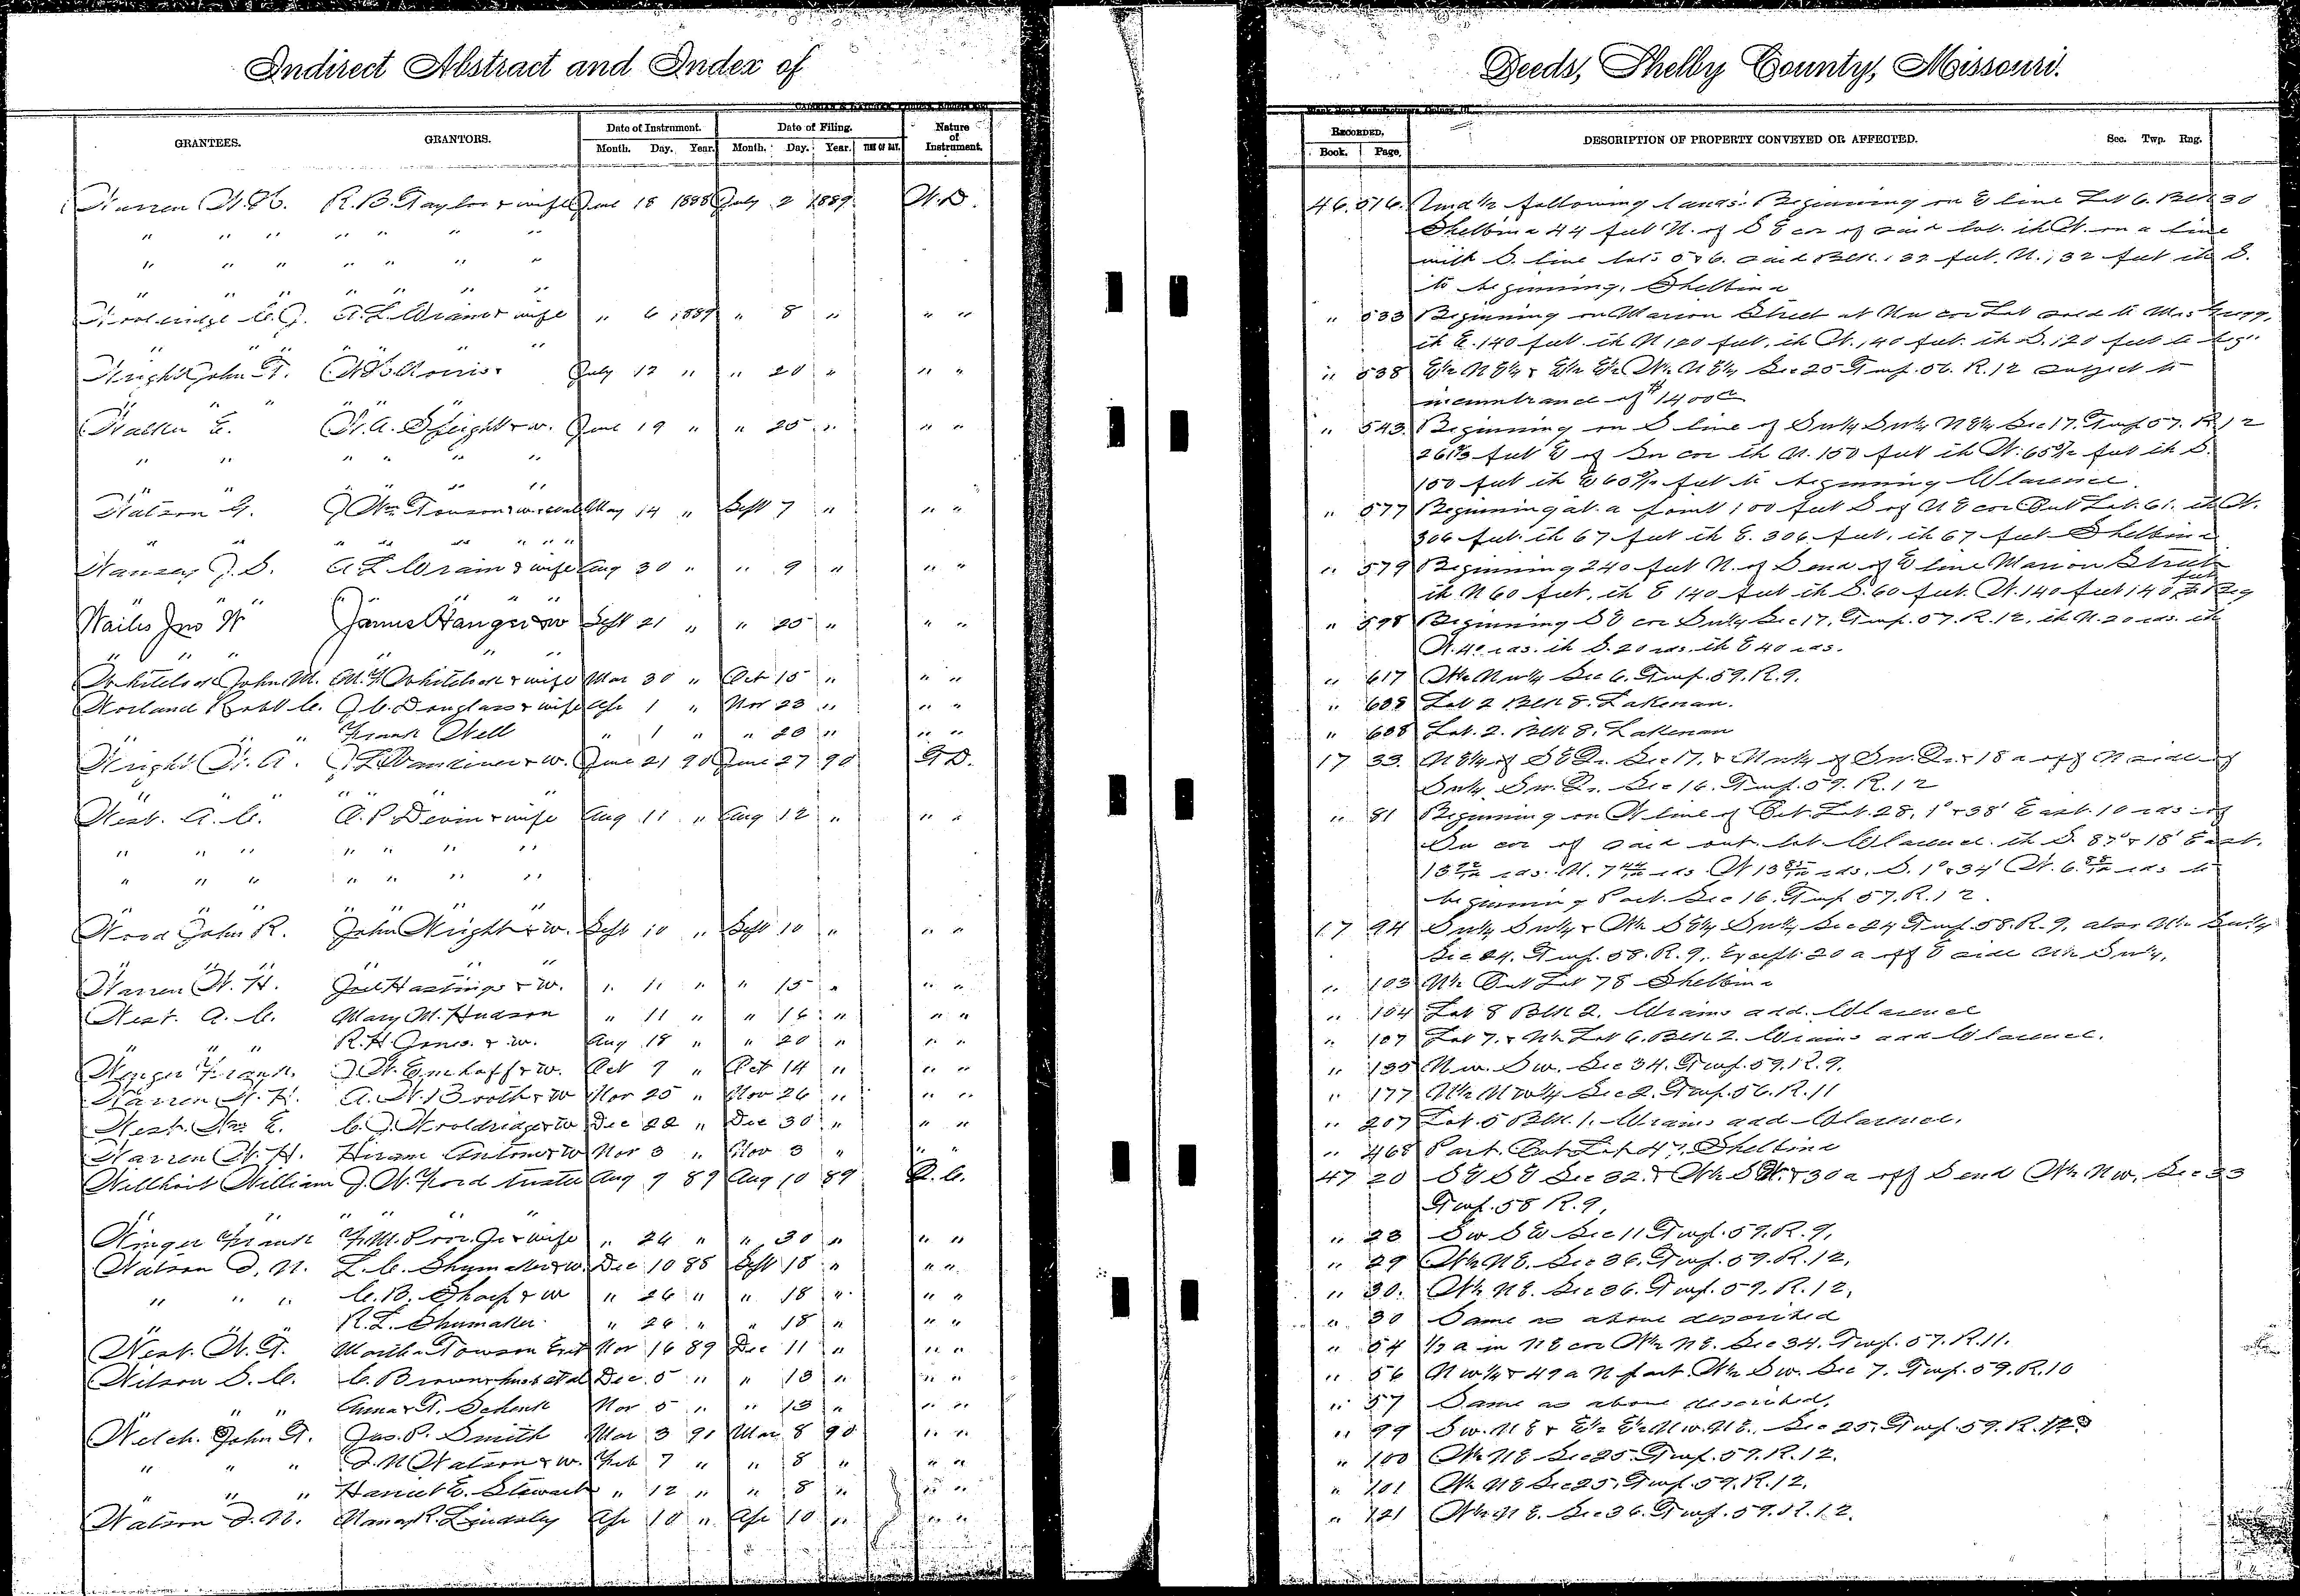 Indirect Abstract and Index of
Deeds, Shelby County, Missouri.
GRANTEES. GRANTORS. Date of Instrument. Date of Filing. Nature of Instrument.
Month. Day. Year. Month. Day. Year. TIME OF DAY.
RECORDED. DESCRIPTION OF PROPERTY CONVEYED OR AFFECTED. Sec. Twp. Rng.
Book. Page.
Warren W. H. R. B. Taylor & wife June 18 1888 July 2 1889 W. D. 46 516 Und ½ following lands: Beginning on E line Lot 6. Blk 30
" " " " " " " Shelbina 44 feet N. of S E cor of said lot. th W. on a line
" " " " " " " with S. line lots 5 & 6. said Blk. 132 feet. N. 132 feet th S.
" " " " " " " to beginning, Shelbina
Wooldridge C. J. A. L. Crain & wife " 6 1889 " 8 " " " " 533 Beginning on Marion Street at Nw cor Lot sold to Mrs
" " " " " " th E. 140 feet. th N 120 feet, th W. 140 feet. th S. 120 feet to beg"
Wright John T. Morris July 12 " " 20 " " " " 538 E½ N E¼ & E½ E½ W½ N E¼ Sec 25 Twp. 56. R. 12 subject to
" " " incumbrance of $1400
Walker E. W. A. Speight & w. June 19 " " 25 " " " " 543 Beginning on S line of Sw¼ Sw¼ N E¼ Sec 17. Twp 57. R. 12
" " " " " " feet E of Sw cor th N. 150 feet th W. feet th S.
" " " " " " 150 feet th E feet to beginning Clarence.
Watson G. J Wm Towson & w. et al May 14 " Sept 7 " " " " 577 Beginning at a point 100 feet S of N E cor Out Lot 61. th W.
" " " " " " " 306 feet th 67 feet th E. 306 feet, th 67 feet Shelbina
J. S. A L Crain & wife Aug 30 " " 9 " " " " 579 Beginning 240 feet N. of S end of E line Marion Street
" " " " " " th N 60 feet, th E 140 feet th S. 60 feet. W. 140 feet 140 feet to Beg
Wailes Jno W James Hanger & w Sept 21 " " 25 " " " " 598 Beginning S E cor Sw¼ Sec 17, Twp. 57. R. 12. th N. 20 rds. th
" " " " " W. 40 rds. th S. 20 rds. th E 40 rds.
Whitelock John M. M. F Whitelock & wife Mar 30 " Oct 15 " " " " 617 W½ Nw¼ Sec 6. Twp. 59. R. 9.
Worland Robt C. J. C. Douglass & wife Apr 1 " Nov 23 " " " " 608 Lot 2 Blk 8. Lakenan.
" " " Frank Well " 1 " " 20 " " " " 608 Lot. 2. Blk 8. Lakenan
Wright W. A. J L Vandiver & w. June 21 90 June 27 90 T D. 17 33 N E¼ of S E Qr. Sec 17. & Nw¼ of Sw. Qr. & 18 a off N side of
" " " " " " " Sw¼ Sw. Qr. Sec 16. Twp. 59. R. 12
West. A. C. A. P Devin & wife Aug 11 " Aug 12 " " " " 81 Beginning on W line of Out Lot 28, 1° & 38' East. 10 rds. of
" " " " " " " Sw cor of said out lot Clarence. th S. 87° & 18' East.
" " " " " " " rds. N. rds. W rds. S. 1° & 34' W. rds to
" " " " " " " beginning Part. Sec 16. Twp 57. R. 12.
Wood John R. John Wright & w. Sept 10 " Sept 10 " " " 17 94 Sw¼ Sw¼ & W½ S E¼ Sw¼ Sec 24 Twp. 58. R. 9, also N½ Sw¼
" " " " " Sec 24. Twp. 58. R. 9. Except 20 a off E side N½ Sw¼.
Warren W. H. Joel Hastings & w. " 11 " " 15 " " " " 103 N½ Out Lot 78 Shelbina
West. A. C. Mary M. Hudson " 11 " " 16 " " " " 104 Lot 8 Blk 2. Crains add. Clarence
" " " R. H Jones. & w. Aug 18 " " 20 " " " " 107 Lot 7. & N½ Lot 6. Blk 2. Crains add Clarence.
Winger Frank. J. W. Emehoff & w. Oct 9 " Oct 14 " " " " 135 Nw. Sw. Sec 34. Twp. 59. R. 9.
Warren W. H. A. W. Booth & w Nov 25 " Nov 26 " " " " 177 N½ Nw¼ Sec 2. Twp. 56. R. 11
West. Wm E. C. J. Wooldridge & w Dec 22 " Dec 30 " " " " 207 Lot. 5 Blk. 1. Crains add Clarence.
Warren W. H. Hiram & w Nov 3 " Nov 3 " " " " 468 Part. Out Lot 47. Shelbina
Willhoit William J. W. Ford trustee Aug 9 89 Aug 10 89 Q. C. 47 20 S E S E Sec 32. & W½ S W. & 30 a off S end W½ Nw. Sec 33
" " " " " " Twp. 58 R. 9.
Winger Frank F. M. Jr & wife " 24 " " 30 " " " " 23 Sw S E Sec 11 Twp. 59. R. 9.
Watson D. N. L. C. Shumaker & w. Dec 10 88 Sept 18 " " " " 29 W½ N E. Sec 36. Twp. 59. R. 12.
" " " C. B. Sharp & w " 26 " " 18 " " " " 30. W½ N E. Sec 36. Twp. 59. R. 12.
" " " R. L. Shumaker " 26 " " 18 " " " " 30 Same as above described
West. W. T. Martha Towson Exx Nov 16 89 Dec 11 " " " " 54 ½ a in N E cor W½ N E. Sec 34. Twp. 57. R. 11.
Wilson S. C. C. Brown & husb et al Dec. 5 " " 13 " " " " 56 Nw¼ & 49 a N part. W½ Sw. Sec 7. Twp. 59. R. 10
" " " Anna T. Schenk Nov 5 " " 13 " " " " 57 Same as above described.
Welch. John T. Jas. P. Smith Mar 3 90 Mar 8 90 " " " 99 Sw. N E & E½ E½ Nw. N E. Sec 25. Twp. 59. R. 12
" " " D. N Watson & w. Feb 7 " " 8 " " " " 100 W½ N E Sec 25. Twp. 59. R. 12.
" " " Harriet E. Stewart " 12 " " 8 " " " " 101 W½ N E Sec 25. Twp. 59. R. 12.
Watson D. N. R. Lindsley Apr 10 " Apr 10 " " " " 121 W½ N E. Sec 36. Twp. 59. R. 12.